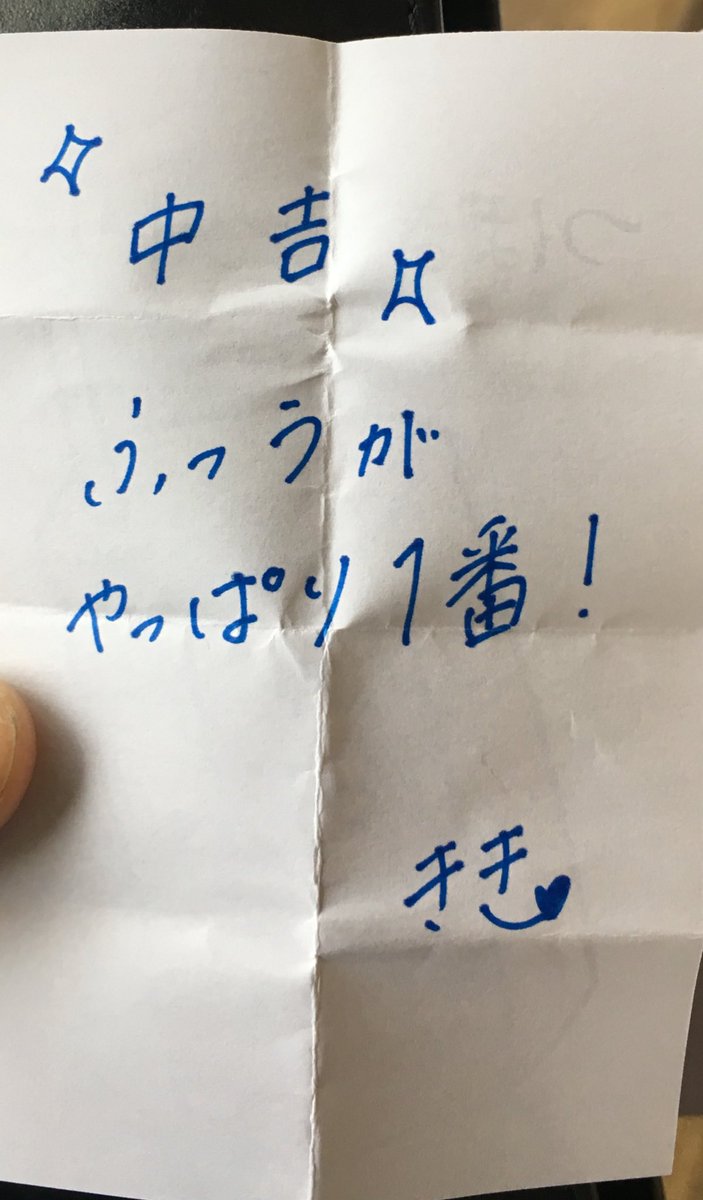 中吉
ふつうが
やっぱり1番!
きき